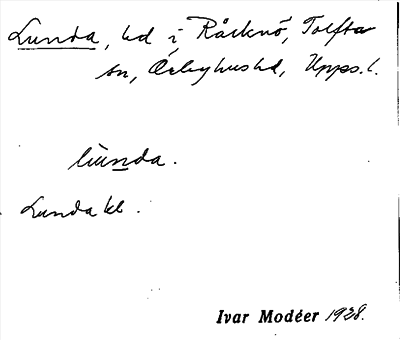 Lunda, hd i Råcknö, Tolfta
sn, Örbyhus hd, Upps. l.
lùnda.
Lunda kl.
Ivar Modéer 1928.